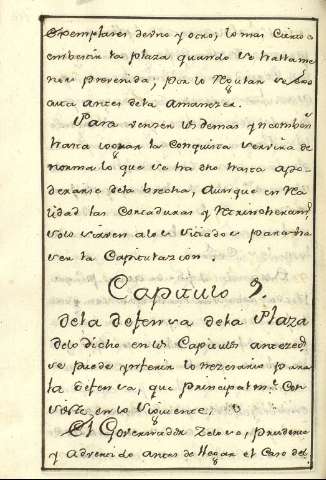 exemplares de uno y otro; lo mas cierto
embestir la plaza quando se halla me
nos prevenida; por lo regular se
antes de la amanezer.
Para vencer los demas yncombⁿ
hasta lograr la Conquista servira de
norma lo que se ha dho hasta apo-
derarse de la brecha, aunque en Rea
lidad las Cortaduras y Atrincheramᵗ
solo sirven a los sitiados para ha
ser la Capitulazion.
Capitulo 9.
de la defensa de la Plaza
de lo dicho en los Capitulos anteced
se puede ynferir lo nezesario para
la defensa, que principalmᵗᵉ Con
siste en lo siguiente;
El Governador Zeloso, prudente
y advertido antes de llegar el Caso del